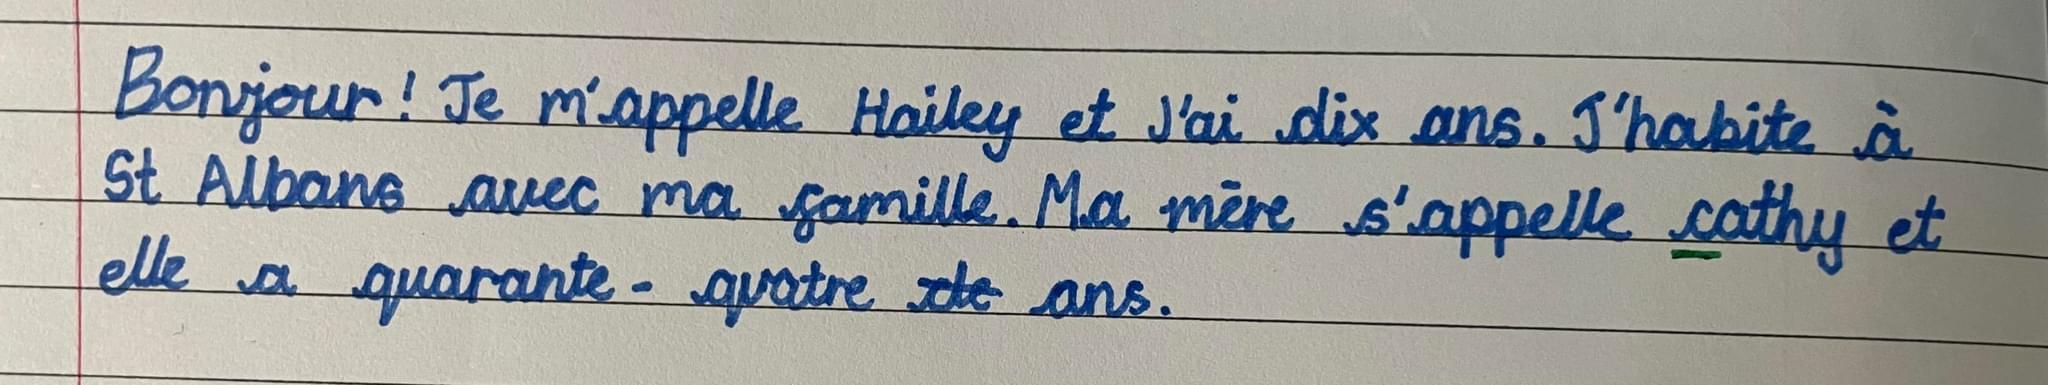 Bonjour! Je m'appelle Hailey et J'ai dix ans. J'habite à
St Albans avec ma famille. Ma mēre s'appelle cathy et
elle a quarante-quatre ans.